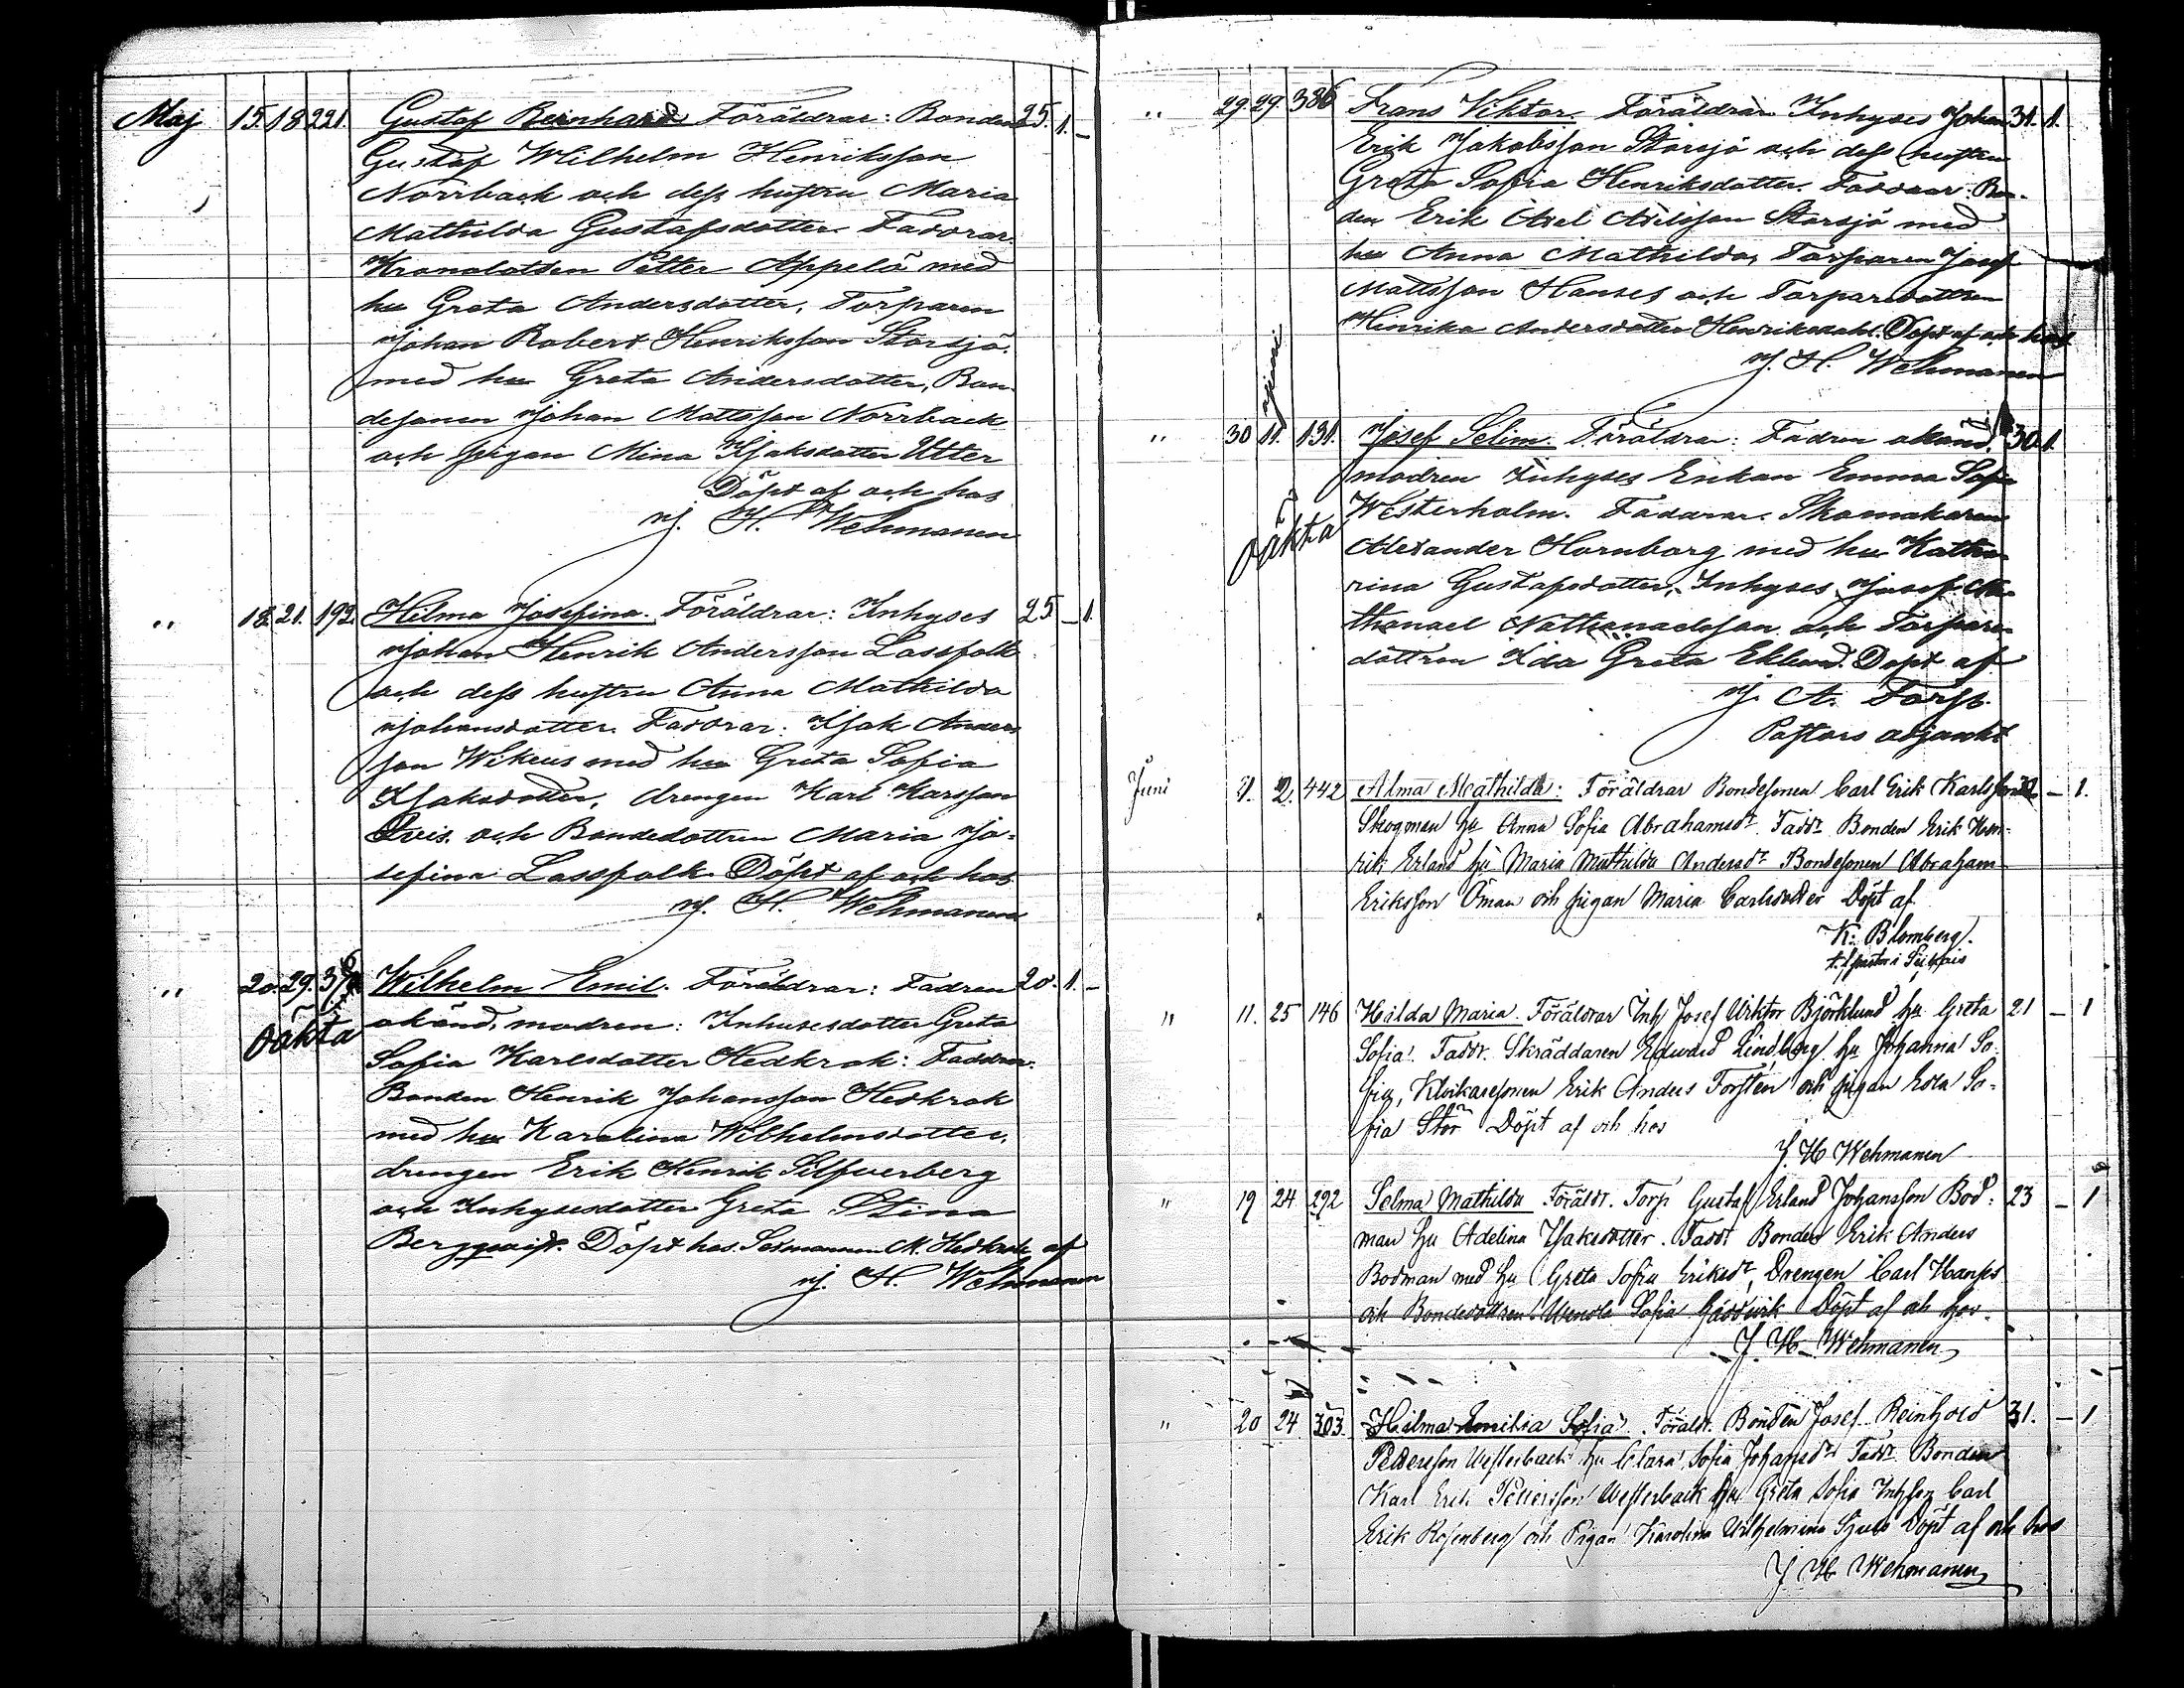 Maj 15. 18 221. Gustaf Reinhard Föräldrar: Bonden 25. 1. –
Gustaf Wilhelm Henriksson
Norrback och dess hustru Maria
Mathilda Gustafsdotter. Faddrar.
Kronolotsen Petter Appelö med
hu Greta Andersdotter, Torparen
Johan Robert Henriksson Storsjö.
med hu Greta Andersdotter, Bon-
desonen Johan Mattsson Norrback
och pigan Mina Isaksdotter Utter
Döpt af och hos
J. H. Wehmanen
" 18. 21. 192. Hilma Josefina. Föräldrar: Inhyses 25 – 1.
Johan Henrik Andersson Lassfolk
och dess hustru Anna Mathilda
Johansdotter. Faddrar: Isak Anders
son Wikeus med hu Greta Sofia
Isaksdotter, drengen Karl Karsson
och Bondedottren Maria Jo-
sefina Lassfolk. Döpt af och hos
J. H. Wehmanen
" 20. 29. Wilhelm Emil. Föräldrar: Fadren 20. 1. –
oäkta
okänd, modren: Inhysesdotter Greta
Sofia Karlsdotter Hedkrok: Faddrar.
Bonden Henrik Johansson Hedkrok
med hu Karolina Wilhelmsdotter,
drengen Erik Henrik Silfverberg
och Inhysesdotter Greta Stina
Bergqvist. Döpt hos Sexmannen M. Hedkrok af
J. H. Wehmanen
" 29. 29. 386 Frans Viktor. Föräldrar Inhyses Johan 31. 1.
Erik Jakobsson Storsjö och dess hustru
Greta Sofia Henriksdotter. Faddrar. Bon-
den Erik Axel Axelsson Storsjö med
hu Anna Mathilda, Torparen Josef
Mattsson Hanses och Torparedottren
Henrika Andersdotter Henriksdahl. Döpt af och hos
J. H. Wehmanen
" 30 11. Juni 131. Josef Selim. Föräldrar: Fadren okänd, 30. 1.
modren Inhyses Enkan Emma Sofia
Westerholm. Faddrar. Skomakaren
oäkta
Alexander Hornborg med hu Katha-
rina Gustafsdotter, Inhyses Josef Na-
thanael Nathanaelsson och Torpare-
dottren Ida Greta Eklund. Döpt af
J. A. Forss.
Pastors adjunkt
Juni 1. 2. 442 Alma Mathilda: Föräldrar Bondesonen Carl Erik Karlsson – 1.
Skogman hu Anna Sofia Abrahamsdr. Faddr. Bonden Erik Hen-
rik Erland hu Maria Mathilda Andersdr Bondesonen Abraham
Eriksson Öman och pigan Maria Carlsdotter Döpt af
K. Blomberg.
" 11. 25 146 Hilda Maria. Föräldrar Inh Josef Wiktor Björklund hu Greta 21 – 1
Sofia. Faddr. Skräddaren Edward Lindberg hu Johanna So-
fia, Klockaresonen Erik Anders Forstén och pigan Edla So-
fia Stor Döpt af och hos
J. H. Wehmanen
" 19 24 292 Selma Mathilda Föräldr. Torp Gustaf Erland Johansson Bod- 23 – 1
man hu Adelina Isaksdotter. Faddr Bonden Erik Anders
Bodman med hu Greta Sofia Eriksdr, Drengen Carl Hanses
och Bondedottren Wendla Sofia Gäddvik Döpt af och hos
J. H. Wehmanen
" 20 24 303. Hilma Emilia Sofia. Föräldr. Bonden Josef Reinhold 31. – 1
Pettersson Westerback hu Clara Sofia Johansdr Faddr. Bonden
Karl Erik Pettersson Westerback hu Greta Sofia Carl
Erik Rosenberg och Pigan Karolina Wilhelmina Döpt af och hos
J. H. Wehmanen